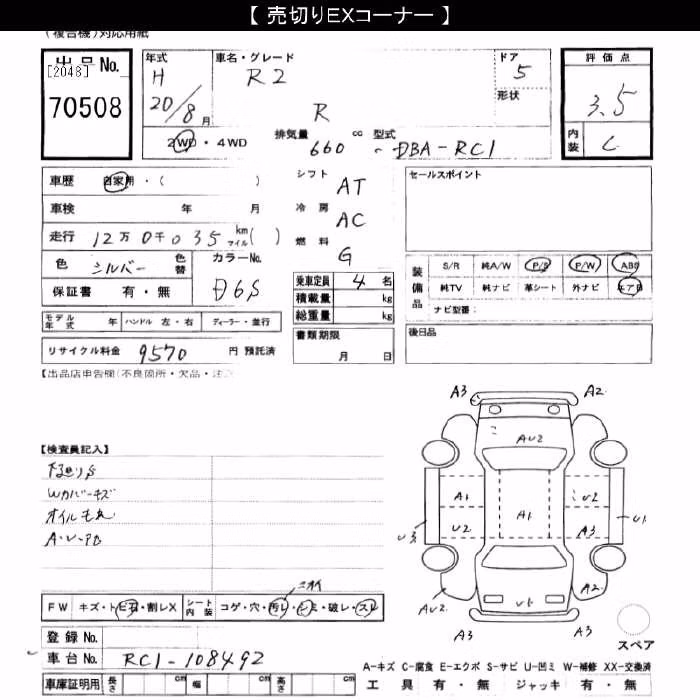 【 売切りEXコーナー 】
(複合機)対応用紙
出品No.
[2048]
70508
年式
H
20/8月
車名・グレード
R2
R
ドア
5
形状
評価点
3.5
内装
C
2WD・4WD
排気量 660 cc
型式 DBA-RC1
車歴 自家用・( )
車検 年 月
走行 12万0千035 km マイル( )
色 シルバー 色替
カラーNo.
D6S
保証書 有・無
シフト AT
冷房 AC
燃料 G
乗車定員 4 名
積載量 kg
総重量 kg
書類期限
月 日
セールスポイント
装備品
S/R 純A/W P/S P/W ABS
純TV 純ナビ 革シート 外ナビ エアB
ナビ型番:
後日品
モデル年式 年 ハンドル 左・右 ディーラー・並行
リサイクル料金 9570 円 預託済
【出品店申告欄(不良箇所・欠品・注
【検査員記入】
下廻りS
Wカバーキズ
オイルモレ
A・U・PB
A3
A2
AU2
A1
U2
U2
A1
A3
U3
U1
AU2
A2
U1
A3
A3
スペア
ニオイ
FW キズ・トビ石・割レX シート内装 コゲ・穴・汚レ・シミ・破レ・スレ
登録No.
車台No. RC1-108492
車庫証明用 長さ cm 幅 cm 高さ cm
A-キズ C-腐食 E-エクボ S-サビ U-凹ミ W-補修 XX-交換済
工具 有・無 ジャッキ 有・無